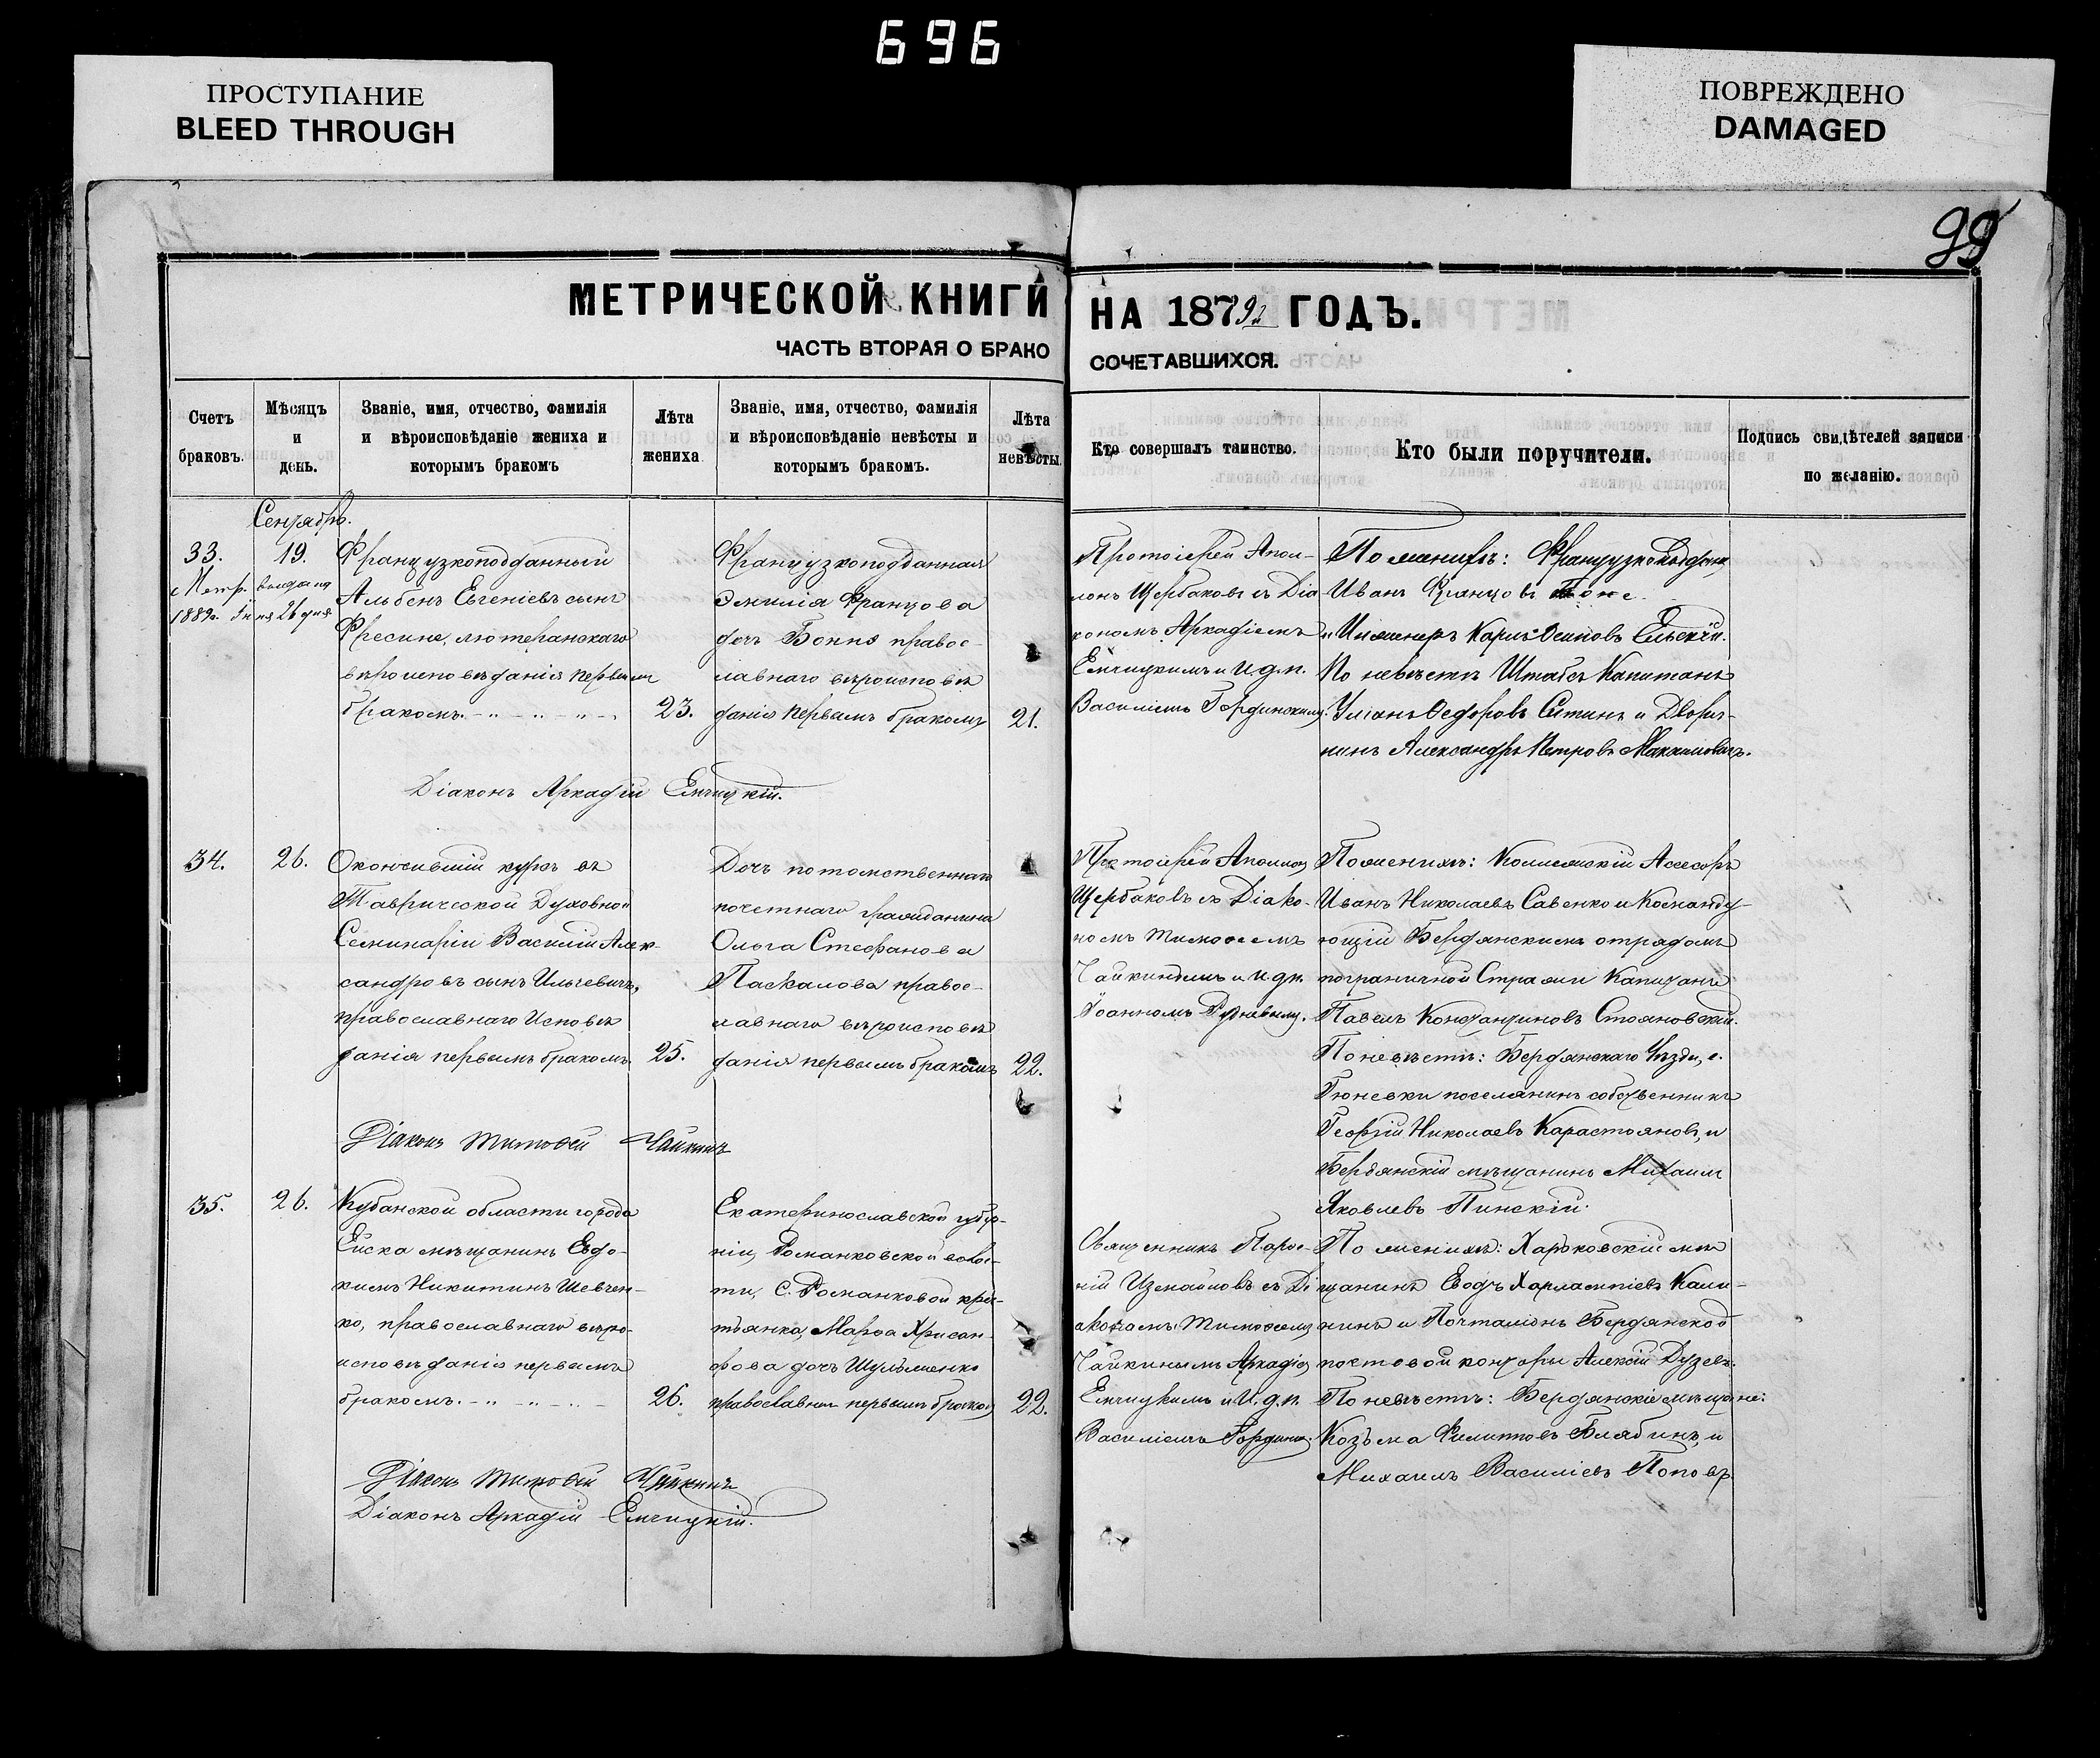 696
ПРОСТУПАНИЕ
BLEED THROUGH
ПОВРЕЖДЕНО
DAMAGED
99
МЕТРИЧЕСКОЙ КНИГИ НА 1879 ГОДЪ.
ЧАСТЬ ВТОРАЯ О БРАКОСОЧЕТАВШИХСЯ.
Счетъ браковъ.
Мѣсяцъ и день.
Званіе, имя, отчество, фамилія
и вѣроисповѣданіе жениха и
которымъ бракомъ
Лѣта жениха
Званіе, имя, отчество, фамилія
и вѣроисповѣданіе невѣсты и
которымъ бракомъ.
Лѣта невѣсты
Кто совершалъ таинство.
Кто были поручители.
Подпись свидѣтелей записи
по желанію.
Сентябрь.
33.
Метр. выдана
1889г. Іюня 26 дня
19.
Французкоподданный
Альбенъ Евгеніевъ сынъ
Фресине, лютеранскаго
вѣроисповѣданія первымъ
бракомъ.
23.
Французкоподданная
Эмилія Францова
дочь Бонне правос-
лавнаго вѣроисповѣ
данія первымъ бракомъ
21.
Протоіерей Апол-
лонъ Щербаковъ съ Діа
кономъ Аркадіемъ
Емчицкимъ и И.д.п.
Василіемъ Гординскимъ.
По женихѣ: Французкоподдан.
Иванъ Францовъ Боне
и Инженеръ Карлъ Осиповъ Ельскій.
По невѣстѣ Штабсъ Капитанъ
Уліанъ Ѳедоровъ Ситинъ и Дворя-
нинъ Александръ Петровъ Максимовичъ.
Діаконъ Аркадій Емчицкій.
34.
26.
Окончившій курсъ въ
Таврической Духовной
Семинаріи Василій Алек-
сандровъ сынъ Ильчевичъ,
православнаго Исповѣ
данія первымъ бракомъ.
25.
Дочь потомственнаго
почетнаго гражданина
Ольга Стефанова
Паскалова правос-
лавнаго вѣроисповѣ
данія первымъ бракомъ
22.
Протоіерей Аполлон
Щербаковъ съ Діако-
номъ Тимоѳеемъ
Чайкинымъ и И.д.п.
Іоанномъ Рудневымъ.
По женихѣ: Коллежскій Ассесоръ
Иванъ Николаевъ Савенко и Команду-
ющій Бердянскимъ отрядомъ
пограничной Стражи Капитанъ
Павелъ Константиновъ Стояновскій.
По невѣстѣ: Бердянскаго Уѣзда, с.
Гюневки поселянинъ собственникъ
Георгій Николаевъ Карастояновъ, и
Бердянскій мѣщанинъ Михаилъ
Яковлевъ Пинскій.
Діаконъ Тимоѳей Чайкинъ
35.
26.
Кубанской области города
Ейска мѣщанинъ Евдо-
кимъ Никитинъ Шевчен-
ко, православнаго вѣро-
исповѣданія первымъ
бракомъ.
26.
Екатеринославской губер-
ніи, Романковской волос-
ти, С. Романковой крес-
тьянка, Марѳа Хрисан-
фова дочь Шульженко
православная первымъ бракомъ
22.
Священникъ Парѳе-
ній Измайловъ съ Ді
акономъ Тимоѳеемъ
Чайкинымъ Аркадіемъ
Емчицкимъ и И.д.п.
Василіемъ Гординс.
По женихѣ: Харьковскій мѣ
щанинъ Еводъ Харлампіевъ Кали-
нинъ и Почталіонъ Бердянской
почтовой конторы Алексій Дузевъ.
По невѣстѣ: Бердянскіе мѣщане:
Козьма Филиповъ Блябинъ, и
Михаилъ Василіевъ Поповъ.
Діаконъ Тимоѳей Чайкинъ
Діаконъ Аркадій Емчицкій.